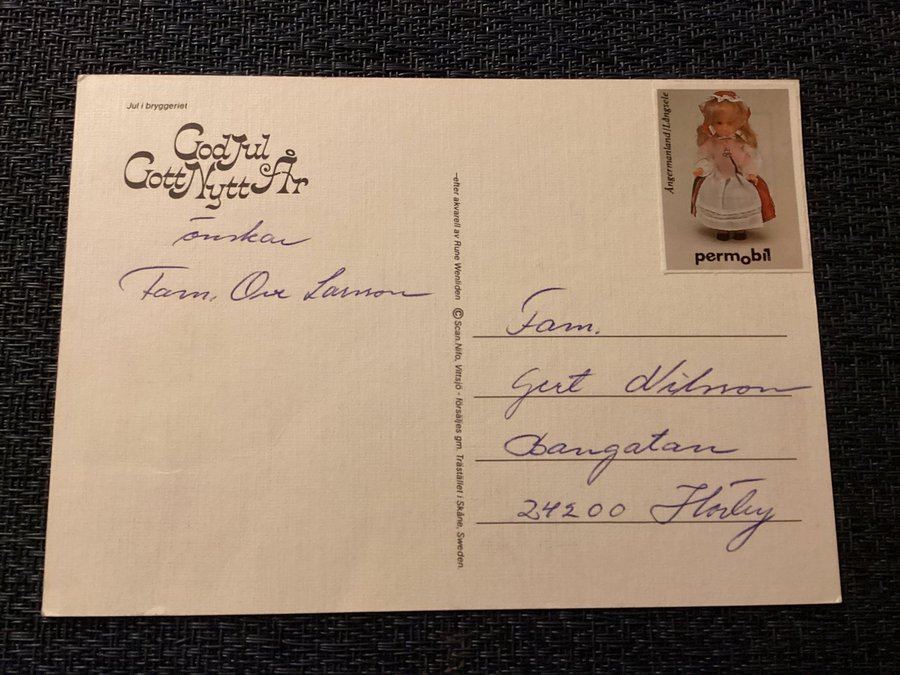 Jul i bryggeriet
God Jul
Gott Nytt År
önskar
Fam. Ove Larsson
–efter akvarell av Rune Wenliden © Scan.Nifo, Vittsjö - försäljes gm. Trästället i Skåne, Sweden.
Ångermanland/Långsele
permobil
Fam.
Gert Nilsson
Bangatan
24200 Hörby